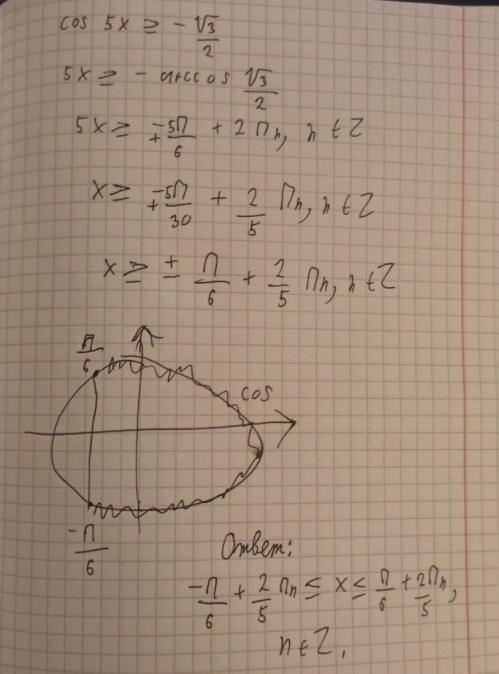 cos 5x ≥ - √3/2
5x ≥ - arccos √3/2
5x ≥ ± -5π/6 + 2πn, n ∈ Z
x ≥ ± -5π/30 + 2/5 πn, n ∈ Z
x ≥ ± π/6 + 2/5 πn, n ∈ Z
π/6
cos
-π/6
Ответ:
-π/6 + 2/5 πn ≤ x ≤ π/6 + 2πn/5,
n ∈ Z.